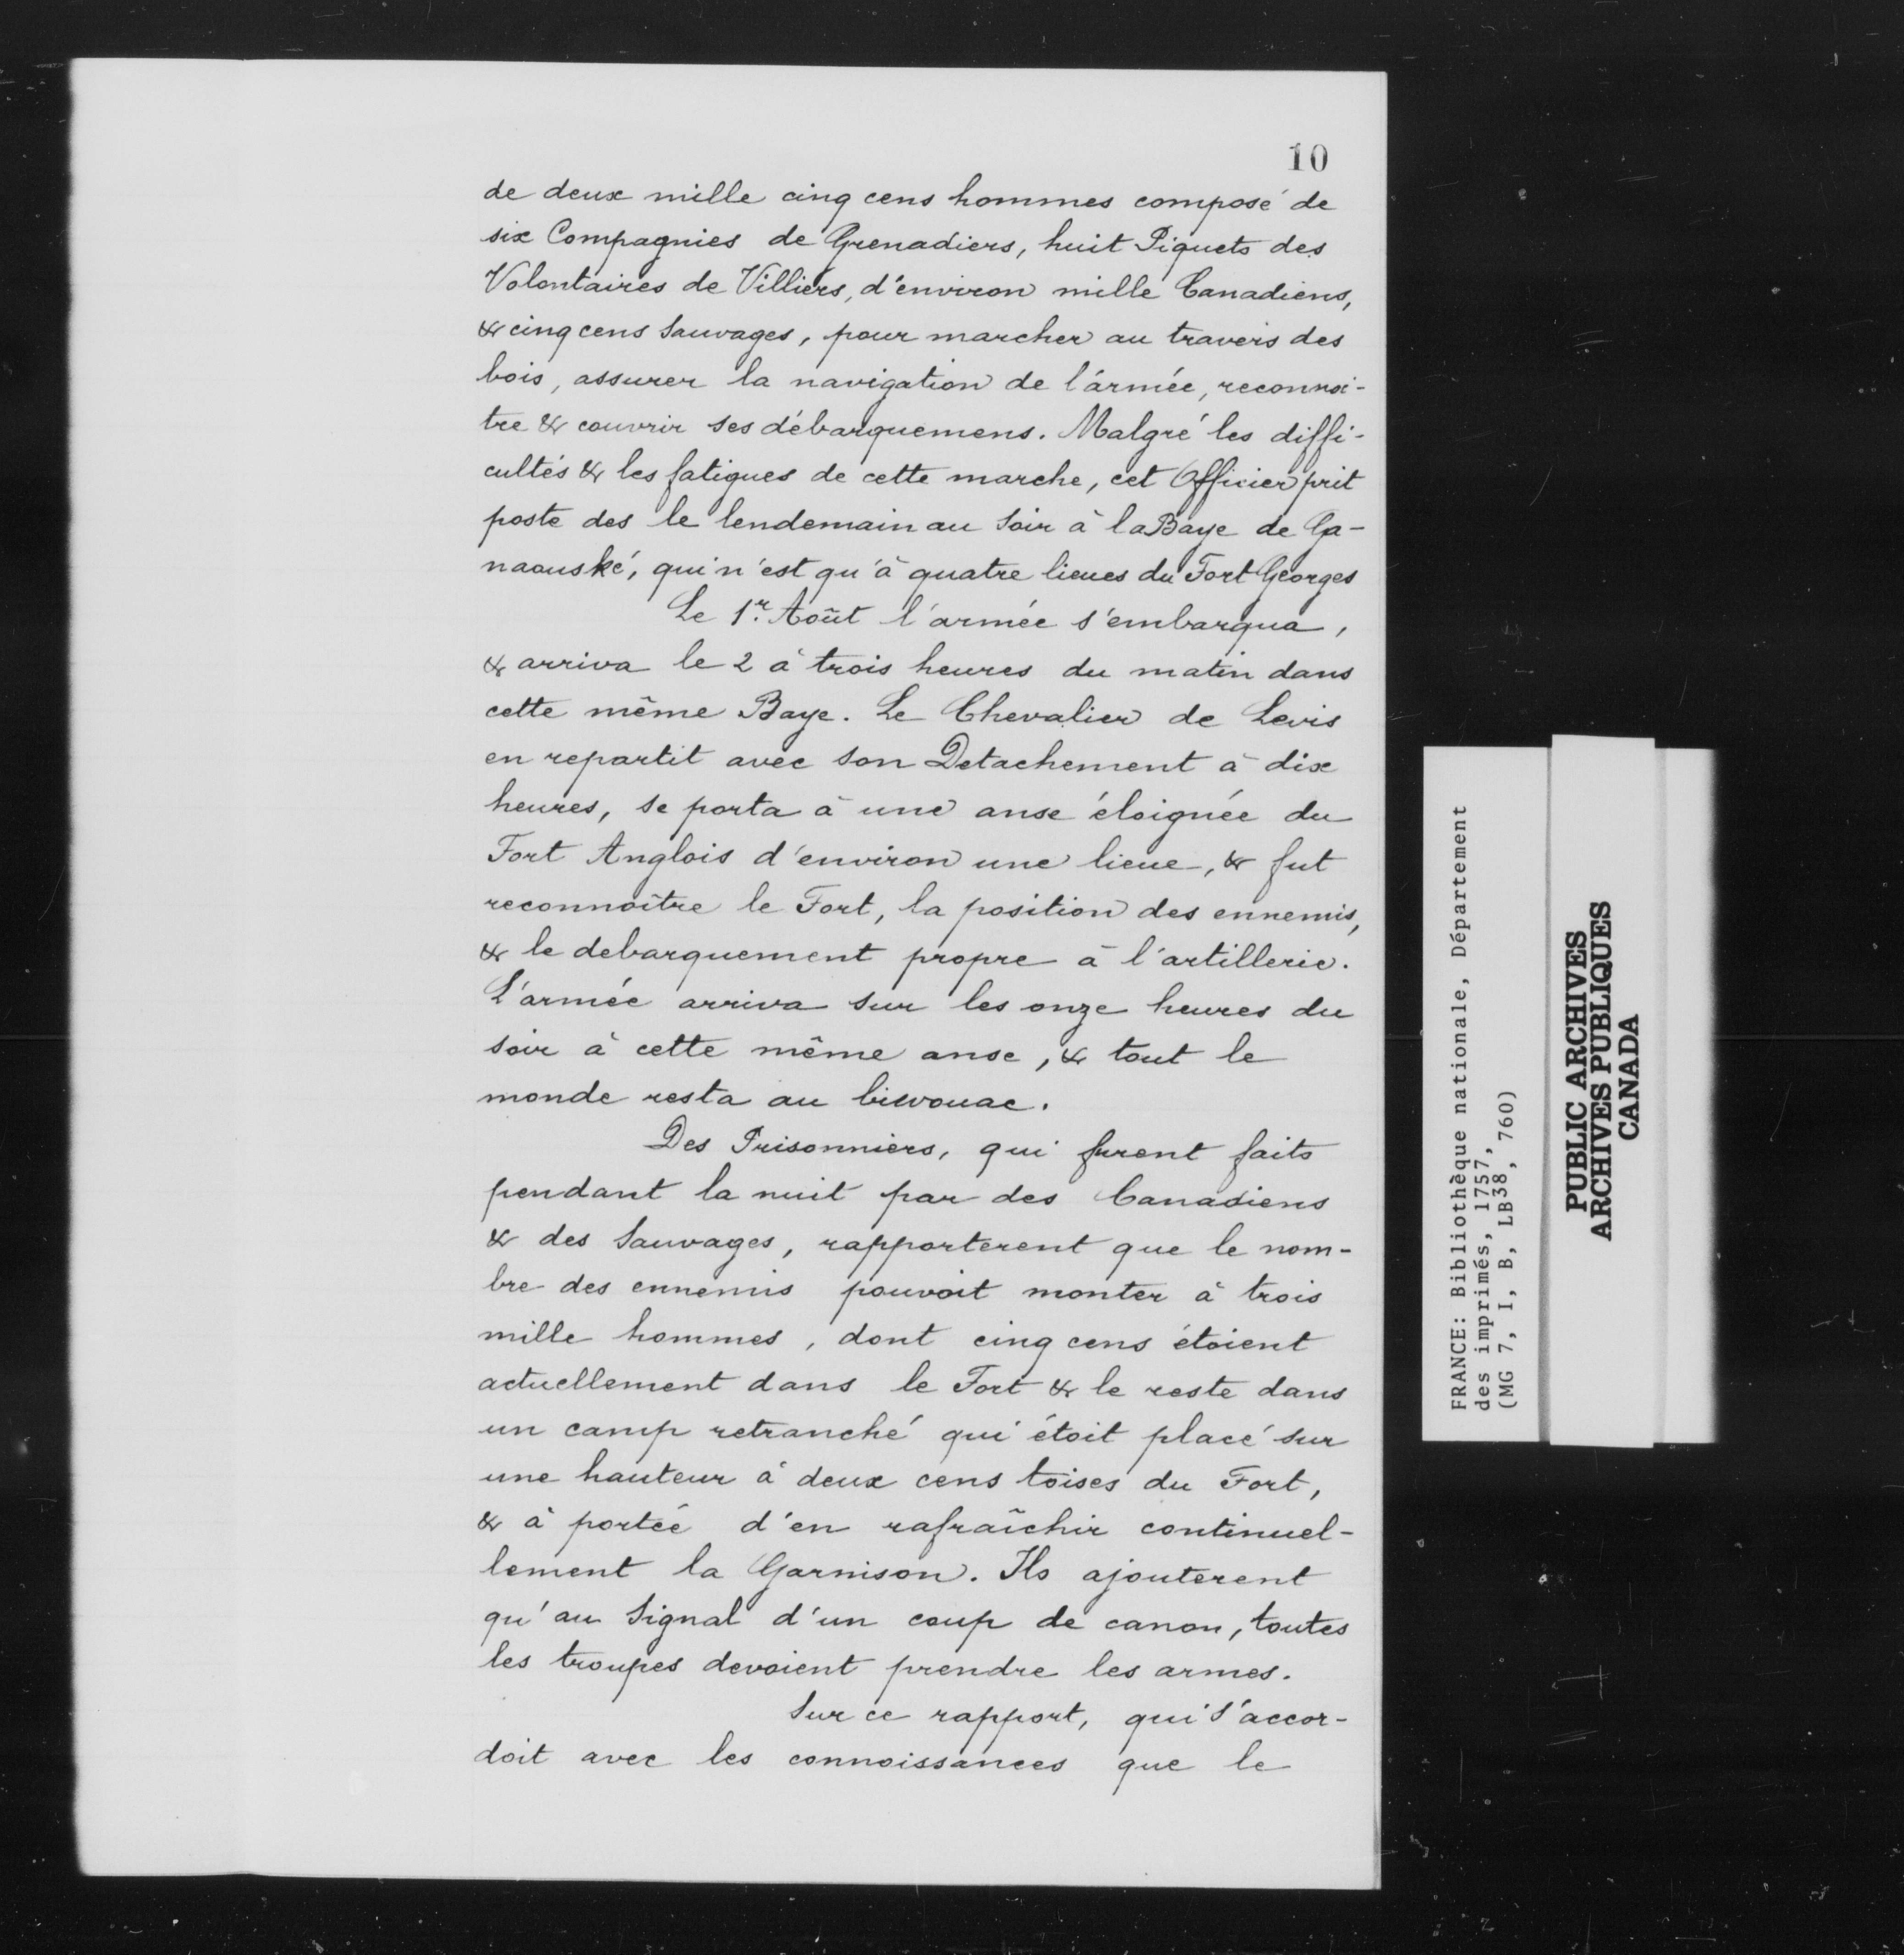 10
de deux mille cinq cens hommes composé de
six Compagnies de Grenadiers, huit Piquets des
Volontaires de Villiers, d'environ mille Canadiens,
& cinq cens Sauvages, pour marcher au travers des
bois, assurer la navigation de l'armée, reconnoi-
tre & couvrir ses débarquemens. Malgré les diffi-
cultés & les fatigues de cette marche, cet Officier prit
poste des le lendemain au soir à la Baye de Ga-
naouské, qui n'est qu'à quatre lieues du Fort Georges
Le 1.r Août l'armée s'embarqua,
& arriva le 2 à trois heures du matin dans
cette même Baye. Le Chevalier de Levis
en repartit avec son Detachement à dix
heures, se porta à une anse éloignée du
Fort Anglois d'environ une lieue, & fut
reconnoître le Fort, la position des ennemis,
& le debarquement propre à l'artillerie.
L'armée arriva sur les onze heures du
soir à cette même anse, & tout le
monde resta au biwouac.
Des Prisonniers, qui furent faits
pendant la nuit par des Canadiens
& des Sauvages, rapporterent que le nom-
bre des ennemis pouvoit monter à trois
mille hommes, dont cinq cens étoient
actuellement dans le Fort & le reste dans
un camp retranché qui étoit placé sur
une hauteur à deux cens toises du Fort,
& à portée d'en rafraîchir continuel-
lement la Garnison. Ils ajouterent
qu'au Signal d'un coup de canon, toutes
les troupes devoient prendre les armes.
Sur ce rapport, qui s'accor-
doit avec les connoissances que le
FRANCE: Bibliothèque nationale, Département
des imprimés, 1757,
(MG 7, I, B, LB38, 760)
PUBLIC ARCHIVES
ARCHIVES PUBLIQUES
CANADA